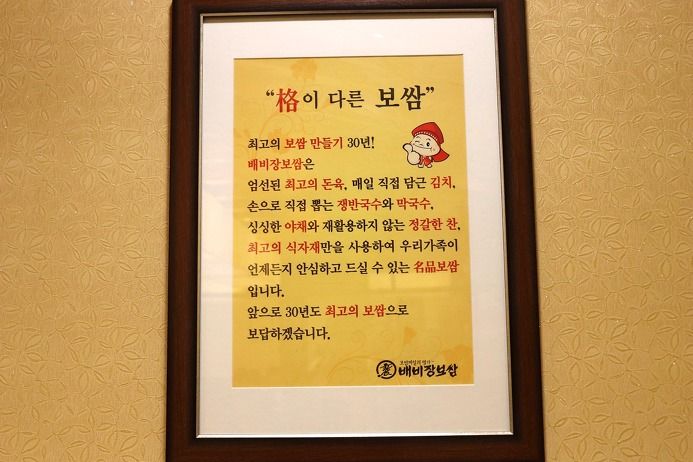 “格이 다른 보쌈”
최고의 보쌈 만들기 30년!
배비장보쌈은
엄선된 최고의 돈육, 매일 직접 담근 김치,
손으로 직접 뽑는 쟁반국수와 막국수,
싱싱한 야채와 재활용하지 않는 정갈한 찬,
최고의 식자재만을 사용하여 우리가족이
언제든지 안심하고 드실 수 있는 名品보쌈
입니다.
앞으로 30년도 최고의 보쌈으로
보답하겠습니다.
배비장보쌈